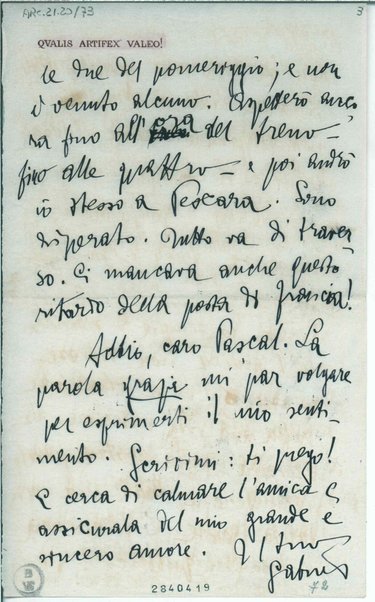 ARC.21.20/73
3
QVALIS ARTIFEX VALEO!
le due del pomeriggio; e non
è venuto alcuno. Aspetterò anco-
ra fino all'ora del treno –
fino alle quattro – e poi andrò
io stesso a Pescara. Sono
disperato. Tutto va di traver-
so. Ci mancava anche questo
ritardo della posta di Francia!
Addio, caro Pascal. La
parola grazie mi par volgare
per esprimerti il mio senti-
mento. Scrivimi: ti prego!
E cerca di calmare l'amica e
assicurala del mio grande e
sincero amore. Il tuo
Gabriel
2840419
72